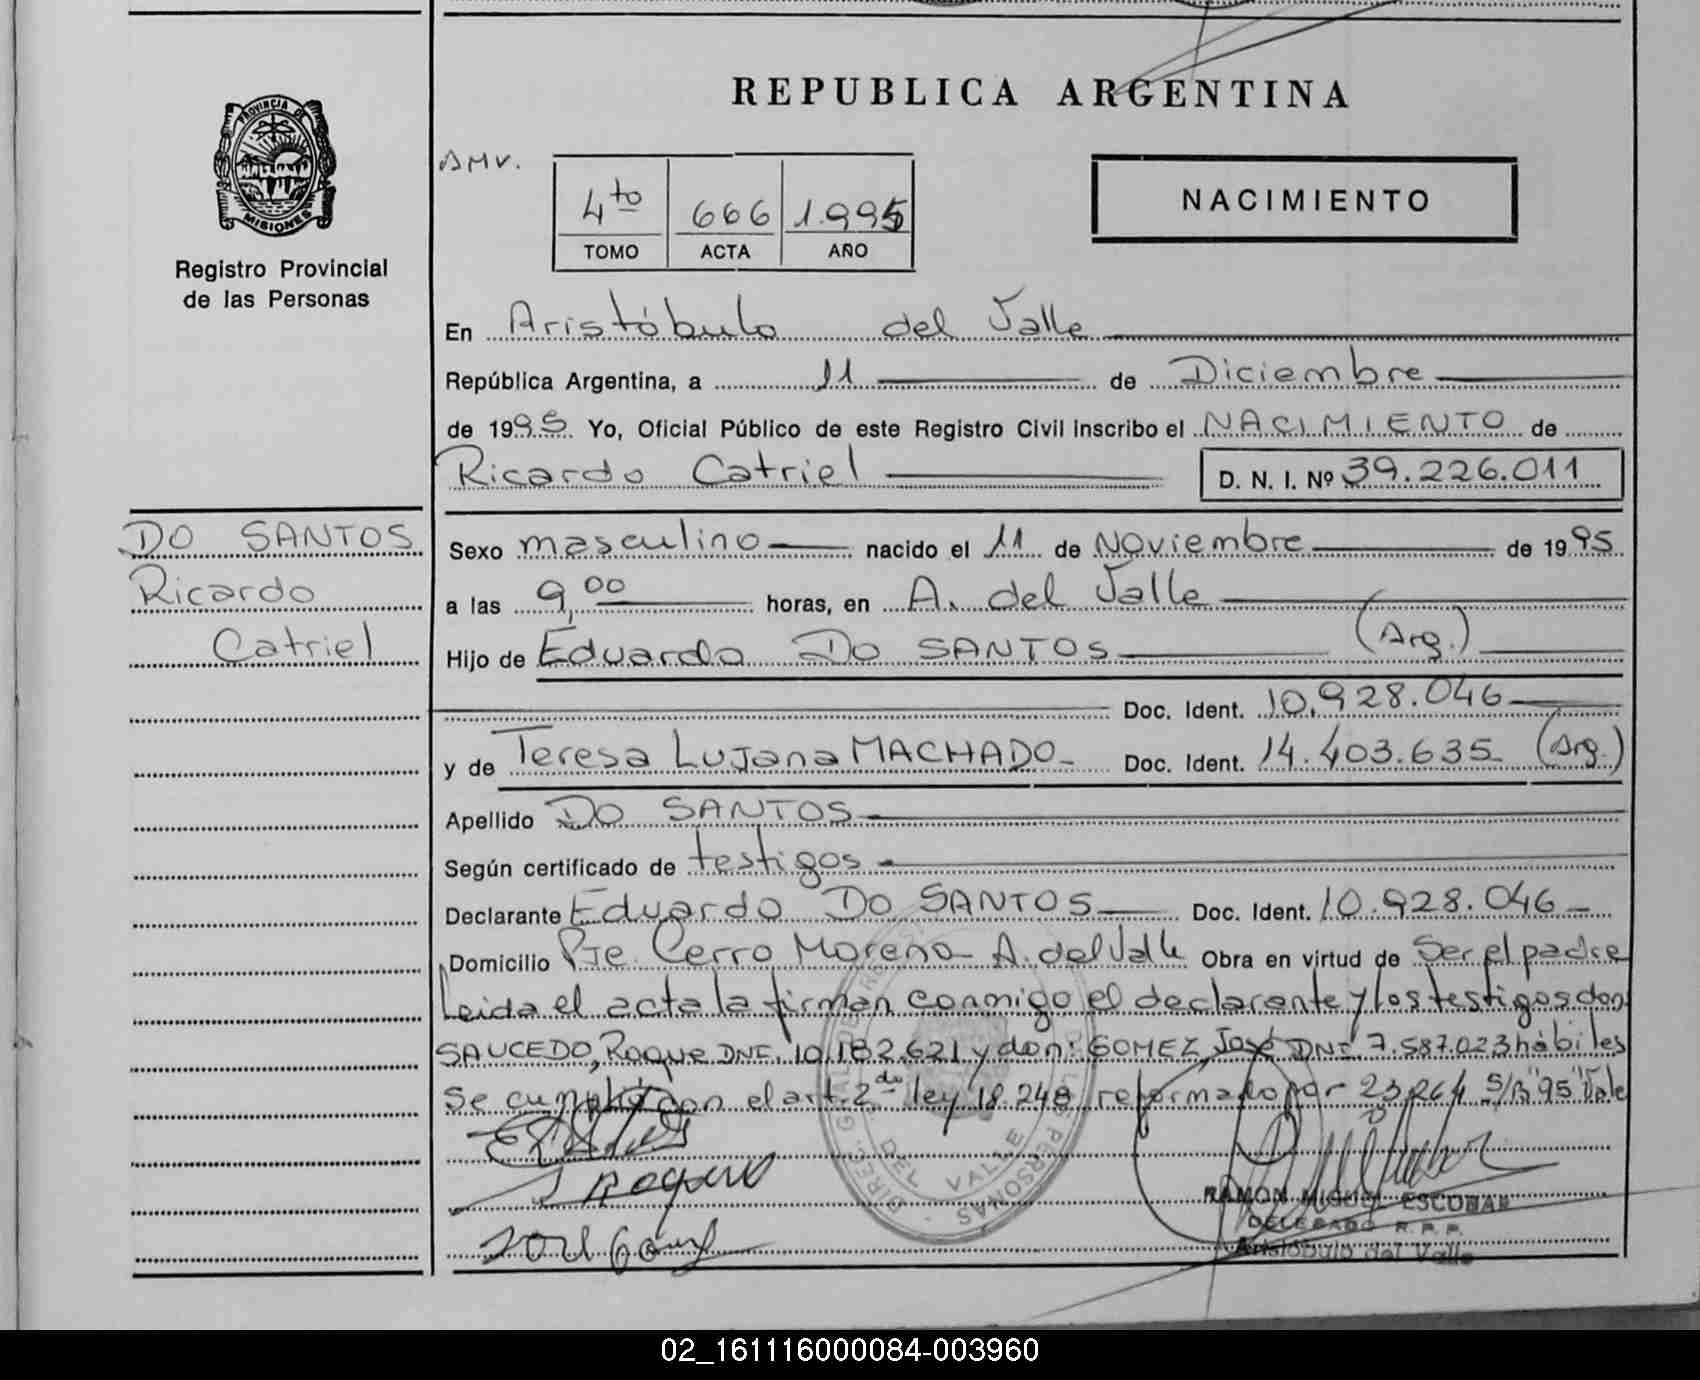 REPUBLICA ARGENTINA
PROVINCIA DE
MISIONES
Registro Provincial
de las Personas
AMV.
4to 666 1.995
TOMO ACTA AÑO
NACIMIENTO
En Aristóbulo del Valle
República Argentina, a 11 de Diciembre
de 1995 Yo, Oficial Público de este Registro Civil inscribo el NACIMIENTO de
Ricardo Catriel D. N. I. Nº 39.226.011
DO SANTOS
Ricardo
Catriel
Sexo masculino nacido el 11 de Noviembre de 1995
a las 9,00 horas, en A. del Valle
Hijo de Eduardo Do SANTOS (Arg.)
Doc. Ident. 10.928.046
y de Teresa Lujana MACHADO Doc. Ident. 14.403.635 (Arg.)
Apellido DO SANTOS
Según certificado de testigos
Declarante Eduardo Do SANTOS Doc. Ident. 10.928.046
Domicilio Pje. Cerro Moreno A. del Valle Obra en virtud de Ser el padre
Leida el acta la firman conmigo el declarante y los testigos don
SAUCEDO, Roque DNI. 10.182.621 y don: GOMEZ, José DNI 7.587.023 hábiles
Se cumplió con el art. 2do ley 18.248 reformado por 23.264 S/R "95" Vale
DIREC. GRAL. DE PERSONAS
DEL VALLE
RAMON MIGUEL ESCOBAR
DELEGADO R. P. P.
Aristóbulo del Valle
02_161116000084-003960